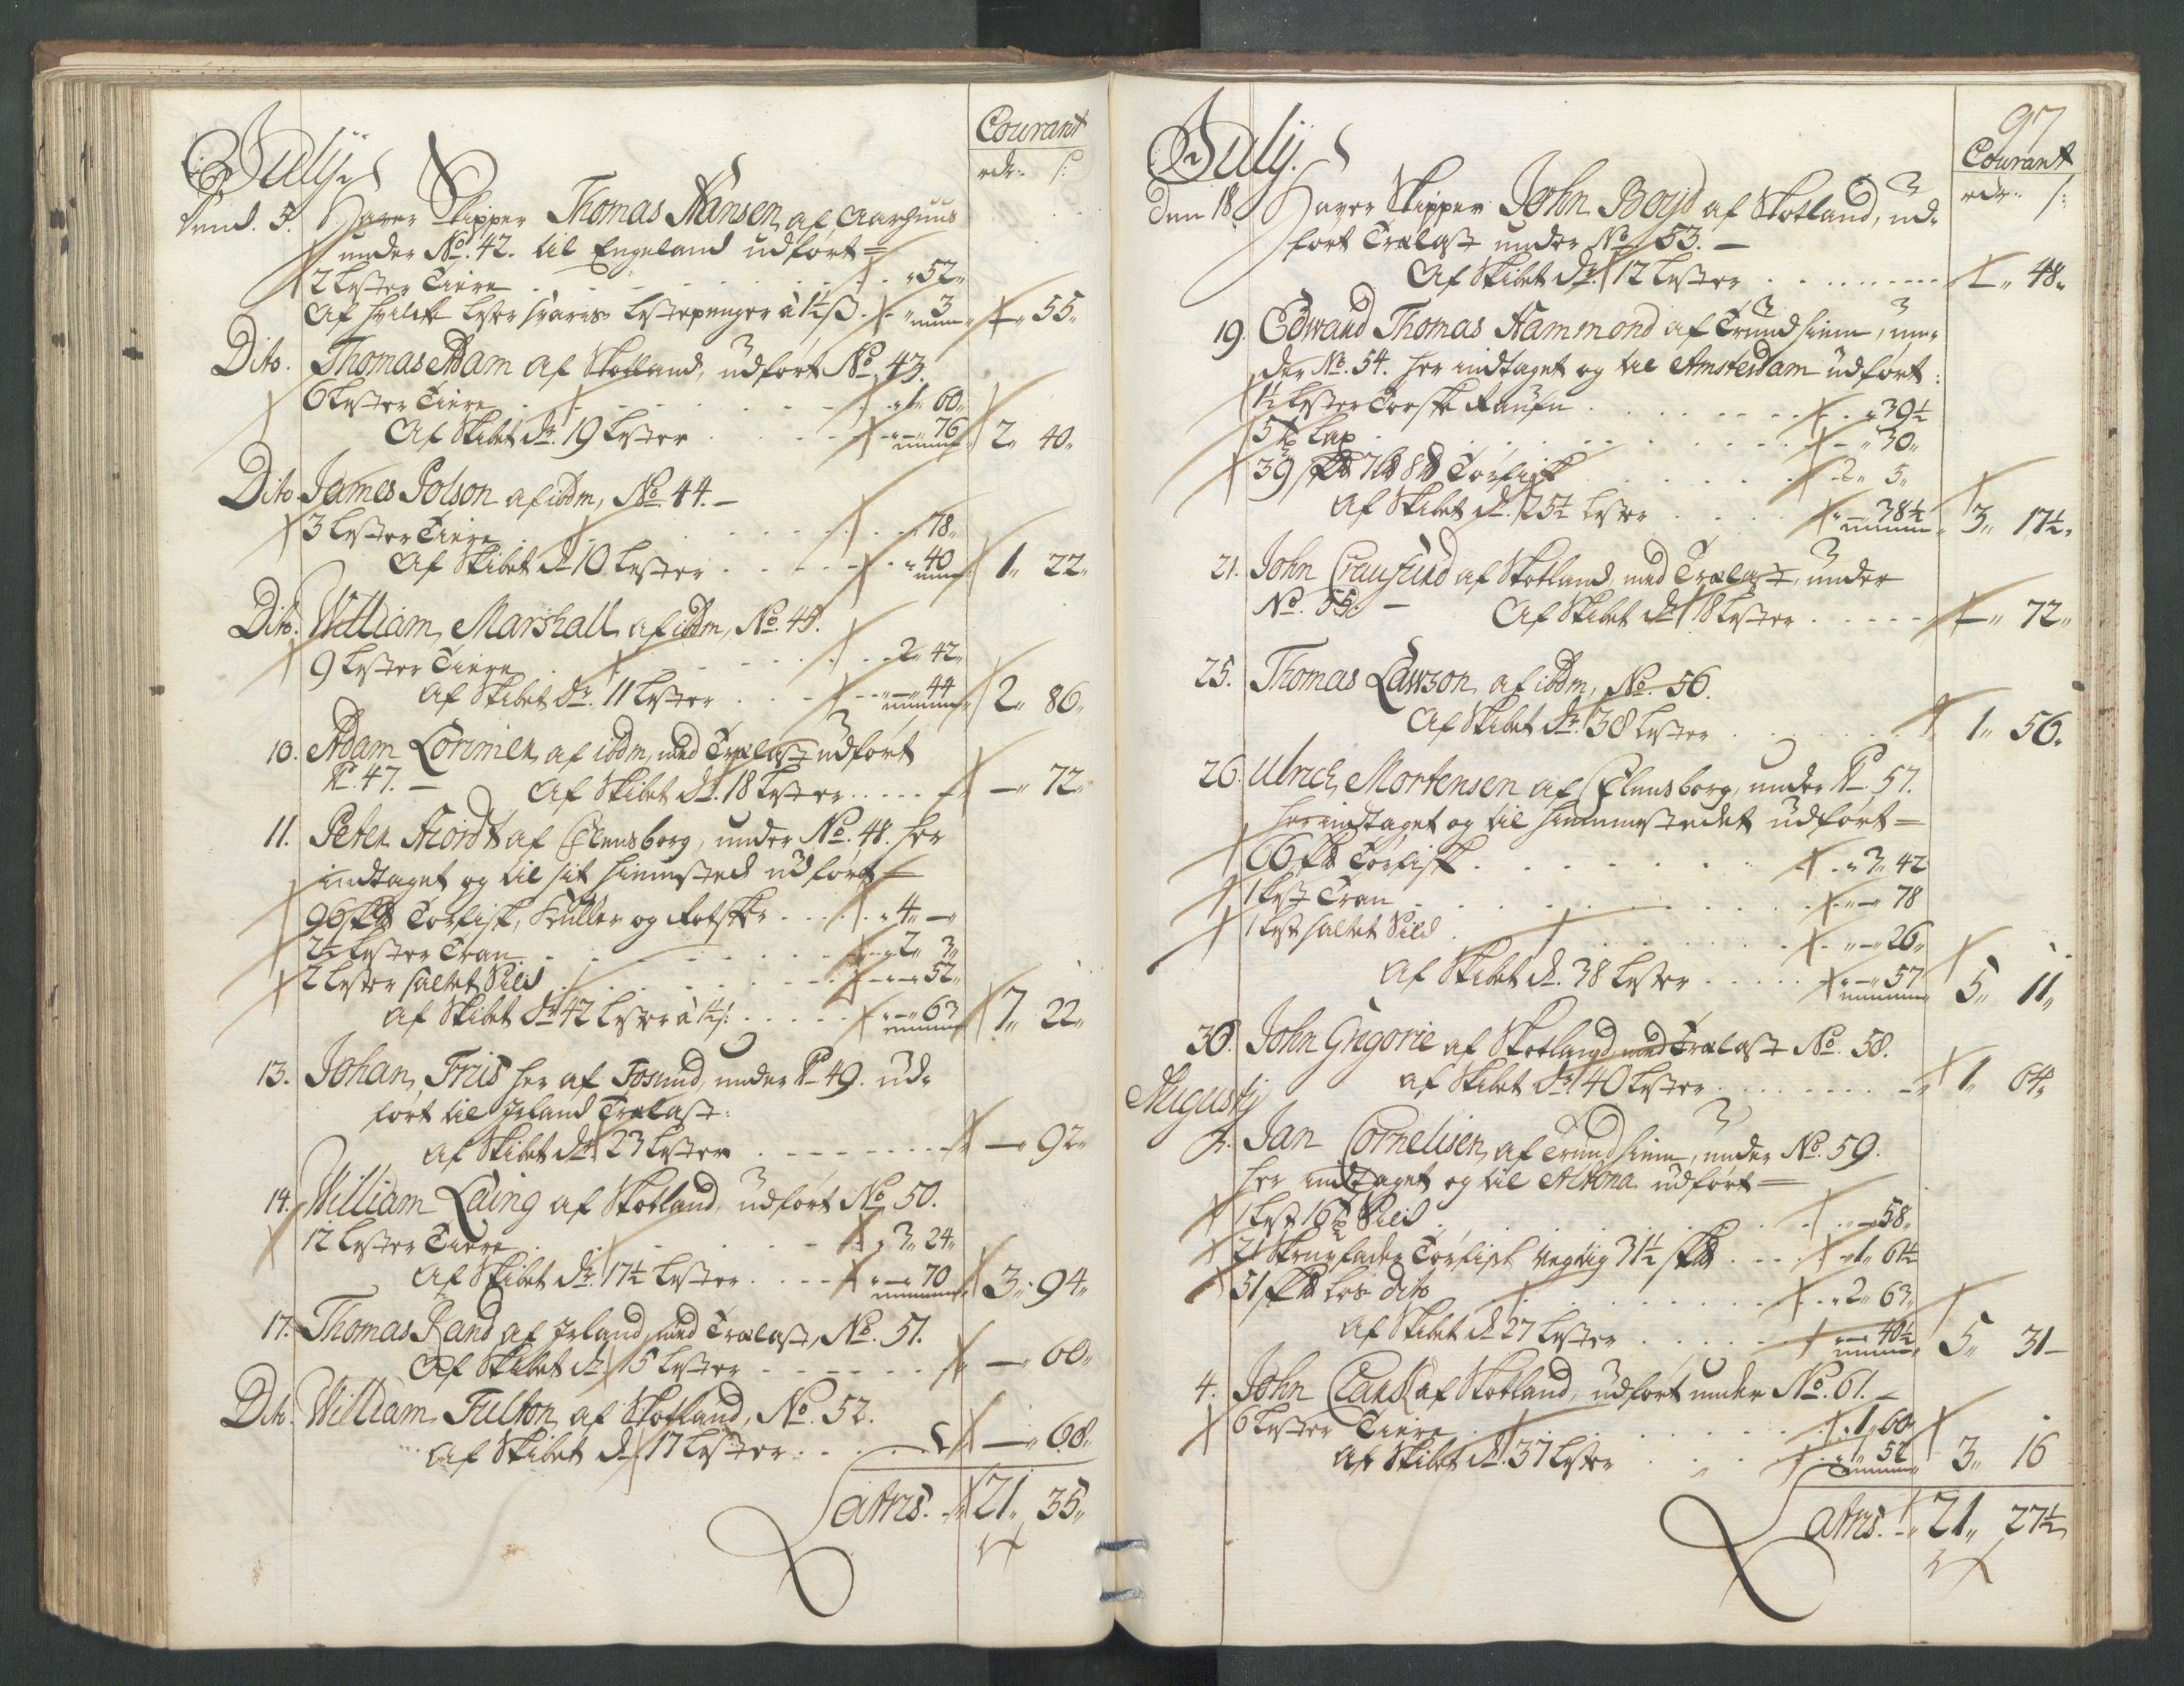 Courant
rdr. s:
July
dend. 5. Haver Skipper Thomas Hansen af Aarhuus
under No. 42. til Engeland udført =
2 Lester Tiere . . . „ 52„
Af hvilcke Lester svaris Lestepenger à 1½ s . „ 3 „ — „ 55„
Dito. Thomas Adam af Skotland, udført No. 43.
6 Lester Tiere . . . „ 1„ 60„
Af Skibet dr. 19 Lester . . . „ — „ 76 2„ 40„
Dito James Polson af ibdm, No. 44. —
3 Lester Tiere . . . 78„
Af Skibet dr. 10 Lester . . . „ 40 1„ 22„
Dito. William Marshall af ibdm, No. 45.
9 Lester Tiere . . . 2„ 42„
Af Skibet dr. 11 Lester . . . „ — „ 44 2„ 86„
10. Adam Lorimer af ibdm, med Trælast udført
No. 47. — Af Skibet dr. 18 Lester . . . — „ 72„
11. Peter Hordt af Flensborg, under No. 48. her
indtaget og til sit Hiemsted udført =
96 sk℔ Torfisk, Kuller og Rotskier . . . „ 4„ —
2½ Lester Tran . . . „ 2„ 3„
2 Lester saltet Sild . . . „ — „ 52„
af Skibet dr. 42 Lester à 1½ s: . . . „ — „ 63 7„ 22„
13. Johan Friis her af Fosund, under No. 49. ud-
ført til Irland Trælast:
af Skibet dr. 23 Lester . . . — „ 92„
14. William Laing af Skotland, udført No. 50.
12 Lester Tiere . . . „ 3„ 24„
Af Skibet dr. 17½ Lester . . . „ — „ 70 3„ 94„
17. Thomas Rand af Irland, med Trælast, No. 51.
Af Skibet dr. 15 Lester . . . — „ 60„
Dito. William Fulton af Skotland, No. 52.
Af Skibet dr. 17 Lester . . . — „ 68„
Latris. „ 21„ 35„
97
July. Courant
rdr. s:
Den 18. Haver Skipper John Boyd af Skotland, ud-
ført Trælast under No. 53. —
Af Skibet dr. 12 Lester . . . — „ 48„
19. Edward Thomas Hammond af Trundhiem, un-
der No. 54. her indtaget og til Amsterdam udført:
1½ Lester Torsk Raufn . . . „ 39½
5 Lax . . . „ 30„
39 sk℔ 7 l℔ 8 ℔ Torfisk . . . 2„ 5„
Af Skibet dr. 25½ Lester . . . „ — „ 38½ 3„ 17½„
21. John Craufurd af Skotland, med Trælast, under
No. 55. — Af Skibet dr. 18 Lester . . . — „ 72„
25. Thomas Lawson af ibdm, No. 56.
Af Skibet dr. 38 Lester . . . 1„ 56„
26. Ulrich Mortensen af Flensborg, under No. 57.
her indtaget og til Hiemmestedet udført =
66 sk℔ Torfisk . . . „ 3„ 42
1 Lest Tran . . . „ — „ 78
1 Lest saltet Sild . . . „ — „ 26„
Af Skibet dr. 38 Lester . . . „ — „ 57 5„ 11„
30. John Grigorie af Skotland, med Trælast No. 58.
af Skibet dr. 40 Lester . . . 1„ 64„
Augustij
2. Jan Cornelisen af Trundhiem, under No. 59.
her indtaget og til Altona udført =
1 Lest 16 Sild . . . „ — 58„
21 Skruefader Torfisk vegtig 31½ sk℔ . . . „ 1„ 61½
51 sk℔ løs dito . . . „ 2„ 63„
Af Skibet dr. 27 Lester . . . „ — „ 40½ 5„ 31 —
4. John af Skotland, udført under No. 61. —
6 Lester Tiere . . . „ 1„ 60
Af Skibet dr. 37 Lester . . . „ 1„ 52 3„ 16
Latris. „ 21„ 27½„